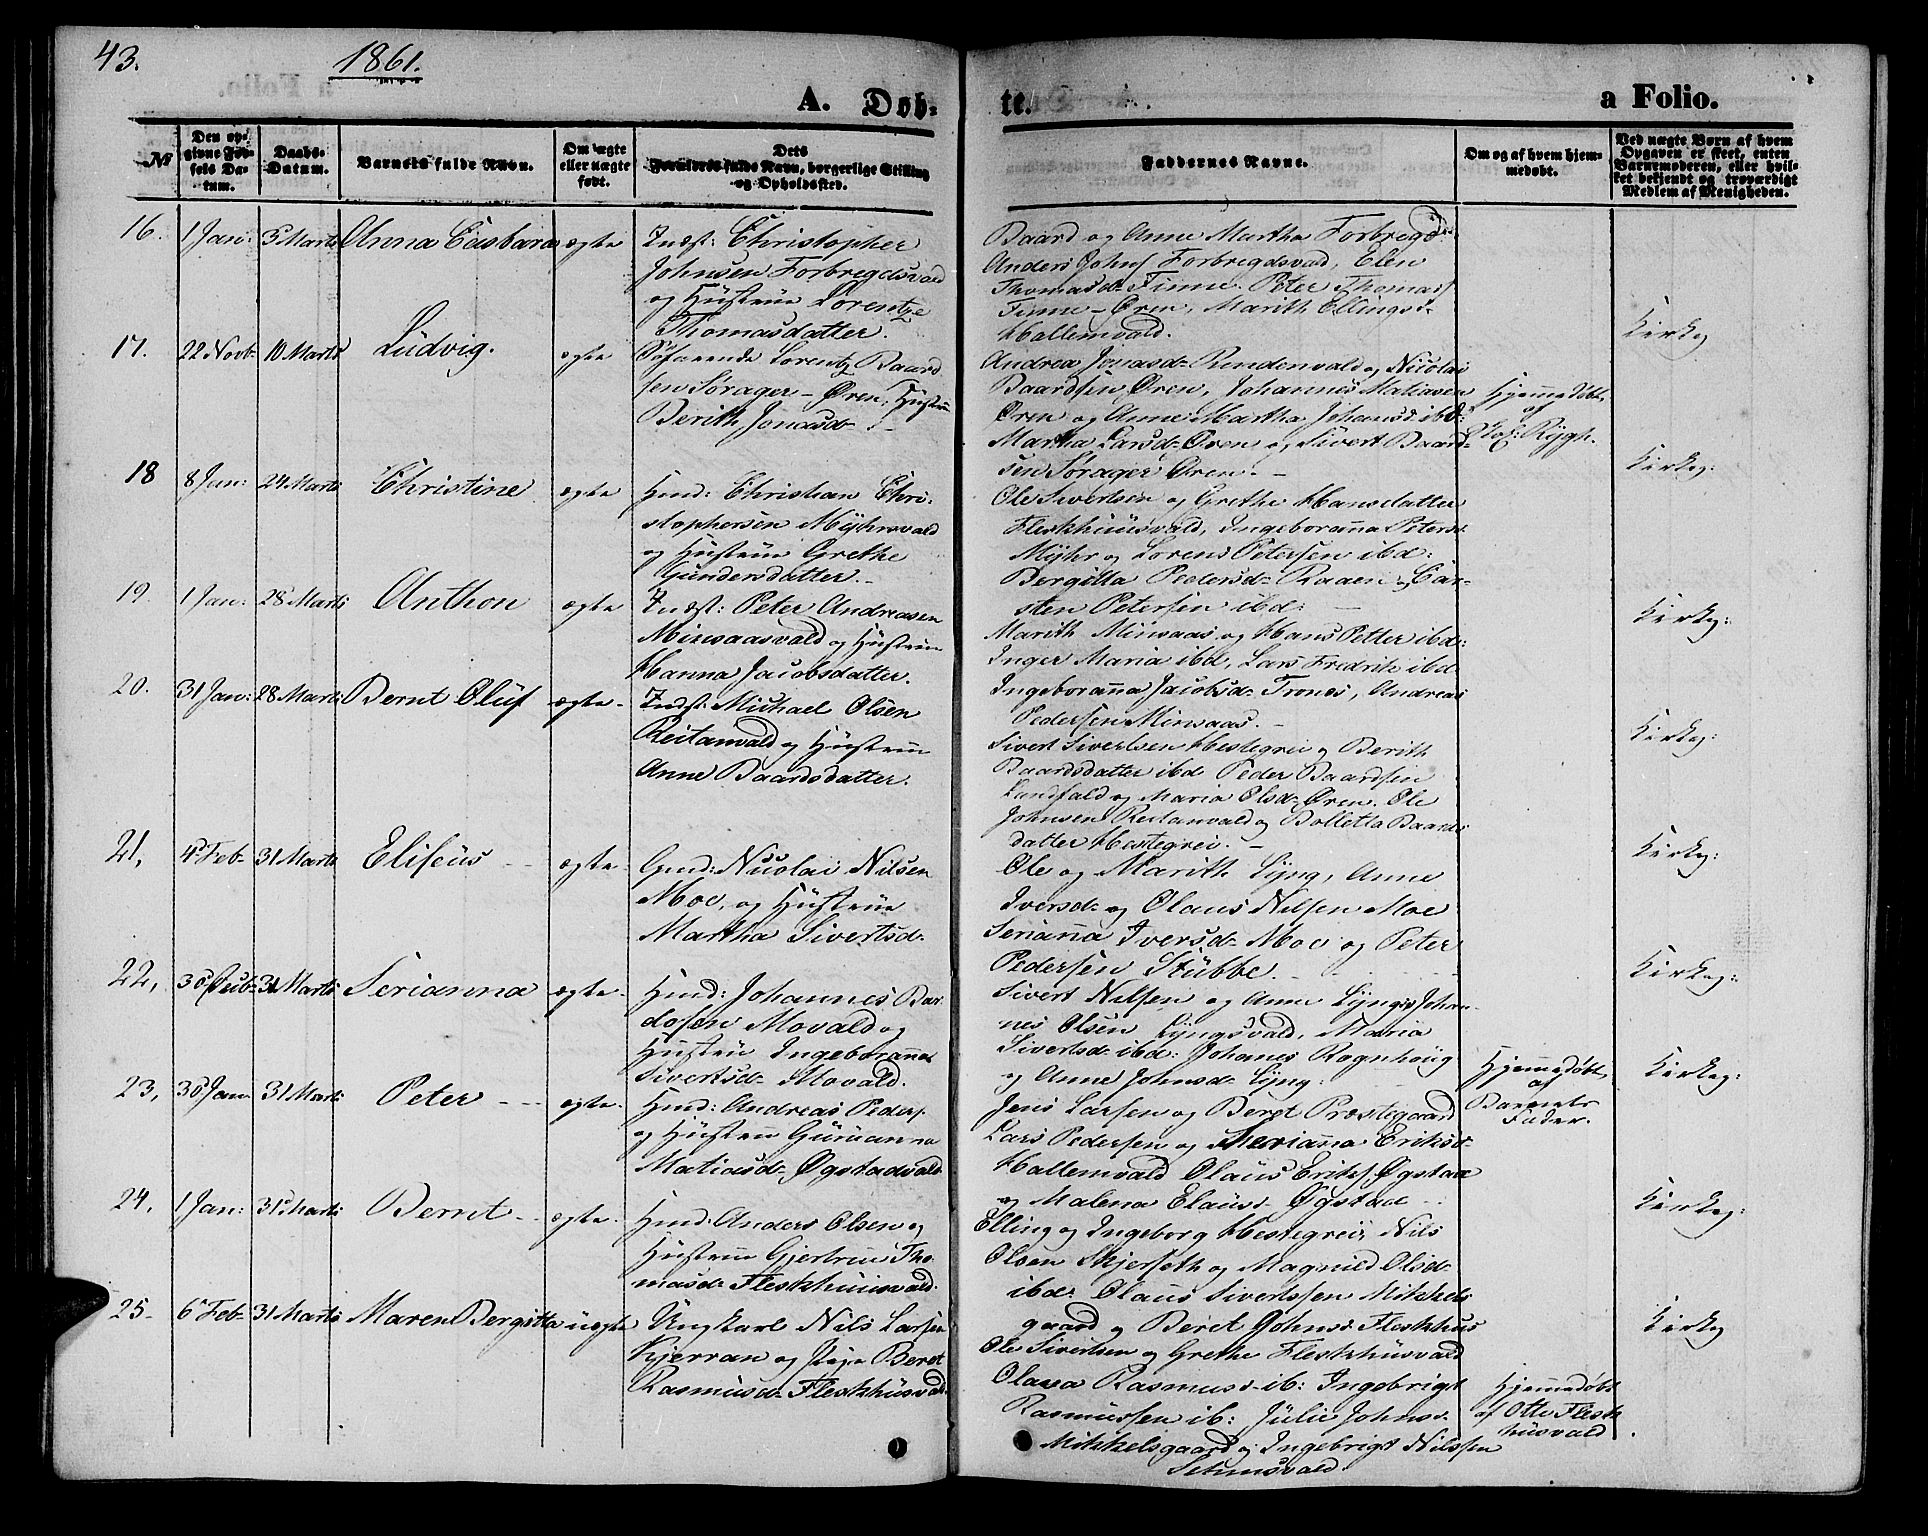 43.
1861.
A. Døb-
te.
a Folio.
№
Den op-
givne Fød-
sels Da-
tum.
Daabs-
Datum.
Barnets fulde Navn.
Om ægte
eller uægte
født.
Dets
Forældres fulde Navn, borgerlige Stilling
og Opholdssted.
Faddernes Navne.
Om og af hvem hjem-
medøbt.
Ved uægte Børn af hvem
Opgaven er skeet, enten
Barnemoderen, eller hvil-
ket bekjendt og troværdigt
Medlem af Menigheden.
16. 1 Jan: 3 Marts Anna ægte Indst: Christopher
Johnsen Forbregdsvald
og Hüstrüe Lorentze
Thomasdatter.
Baard og Anne Martha Forbregd
Anders Johns Forbregdsvald, Elen
Thomasd: Finne. Peter Thomas
Finne-Øren, Marith Ellingsd:
Hallemvald.
Kirkeg
17. 22 Novb: 10 Marts Lüdvig. ægte Søfarende Lorentz Baard
sen Sørager-Øren, Hüstrü
Berith Jonasd:
Andrea Jonasd: Rindenvald og Nicolai
Baardsen Øren, Johannes Matiasen
Øren og Anne Martha Johansd: ibd:
Martha Larsd: Øren og Sivert Baard-
sen Sørager Øren.-
Hjemmedøbt
af
Rygh.
Kirkeg:
18 8 Jan: 24 Marts Christine ægte Hmd: Christian Chri-
stophersen Mÿhrsvald
og Hüstrüe Grethe
Gundersdatter.-
Ole Sivertsen og Grethe Hansdatter
Fleskhüüsvald, Ingeboranna Petersd:
Mÿhr og Lorens Petersen ibd:
Bergitta Pedersd: Raaen, Car-
sten Petersen ibd:
Kirkeg:
19 1 Jan: 28 Marts Anthon ægte Indst: Peter Andreasen
Minsaasvald og Hüstrüe
Hanna Jacobsdatter.
Marith Minsaas og Hans Petter ibd:
Inger Maria ibd, Lars Fredrik ibd
Ingeboranna Jacobsd: Trones, Andreas
Pedersen Minsaas.-
Kirkeg:
20. 31 Jan: 28 Marts Bernt Olüf ægte- Indst: Michael Olsen
Reitanvald og Hüstrüe
Anne Baardsdatter.
Sivert Sivertsen Hestegrei og Berith
Baardsdatter ibd Peder Baardsen
Landfald og Maria Olsd: Øren. Ole
Johnsen Reitanvald og Bolletta Baards
datter Hestegrei.-
Kirkeg:
21, 4 Feb- 31 Marts Eliseüs ægte- Gmd: Nicolai Nilsen
Moe, og Hüstrüe
Martha Sivertsd-
Ole og Marith Lÿng, Anne
Iversd: og Olaus Nilsen Moe
Serianna Iversd: Moe og Peter
Pedersen Stübbe.
Kirkeg:
22, 30 31 Marts Serianna ægte- Hmd: Johannes Baar
dosen Movald og
Hüstrü Ingeboranna
Sivertsd: Movald.
Sivert Nilsen og Anne Lÿng, Johan-
nes Olsen Lÿngsvald, Maria
Sivertsd: ibd: Johanes Rognhoüg
og Anne Johnsd: Lÿng.
Kirkeg:
23, 30 Jan: 31 Marts Peter ægte- Hmd: Andreas Peders.
og Hüstrüe Güruanna
Matiasd: Øgstadvald
Jens Larsen og Beret Præstegaard
Lars Pedersen og Merianna Eriksd:
Hallemvald Olaus Eriks. Øgstad
og Malena Elausd: Øgstad
Hjemmedøbt
af
Barnets
Fader.
Kirkeg:
24, 1 Jan: 31 Marts Bernt ægte- Hmd: Anders Olsen og
Hüstrüe Gjertrüe Tho
masd: Fleskhüüsvald.
Elling og Ingeborg Hestegrei, Nils
Olsen Skjerseth og Magnild Olsd:
ibd: Olaus Sivertsen Mikkels
gaard og Beret Johnsd: Fleskhus
Kirkeg:
25- 6 Feb- 31 Marts Maren Bergitta üægte Üngkarl Nils Larsen
Kjerran og Pige Beret
Rasmüsd: Fleskhüsvald
Ole Sivertsen og Grethe Fleskhüsvald
Olava Rasmusd: ib: Ingebrigt
Rasmüssen ib: Jülie Johnsd:
Mikkelsgaard og Ingebrigt Nilssen
Semsvald
Hjemmedøbt
af Otte Flesk
hüsvald
Kirkeg